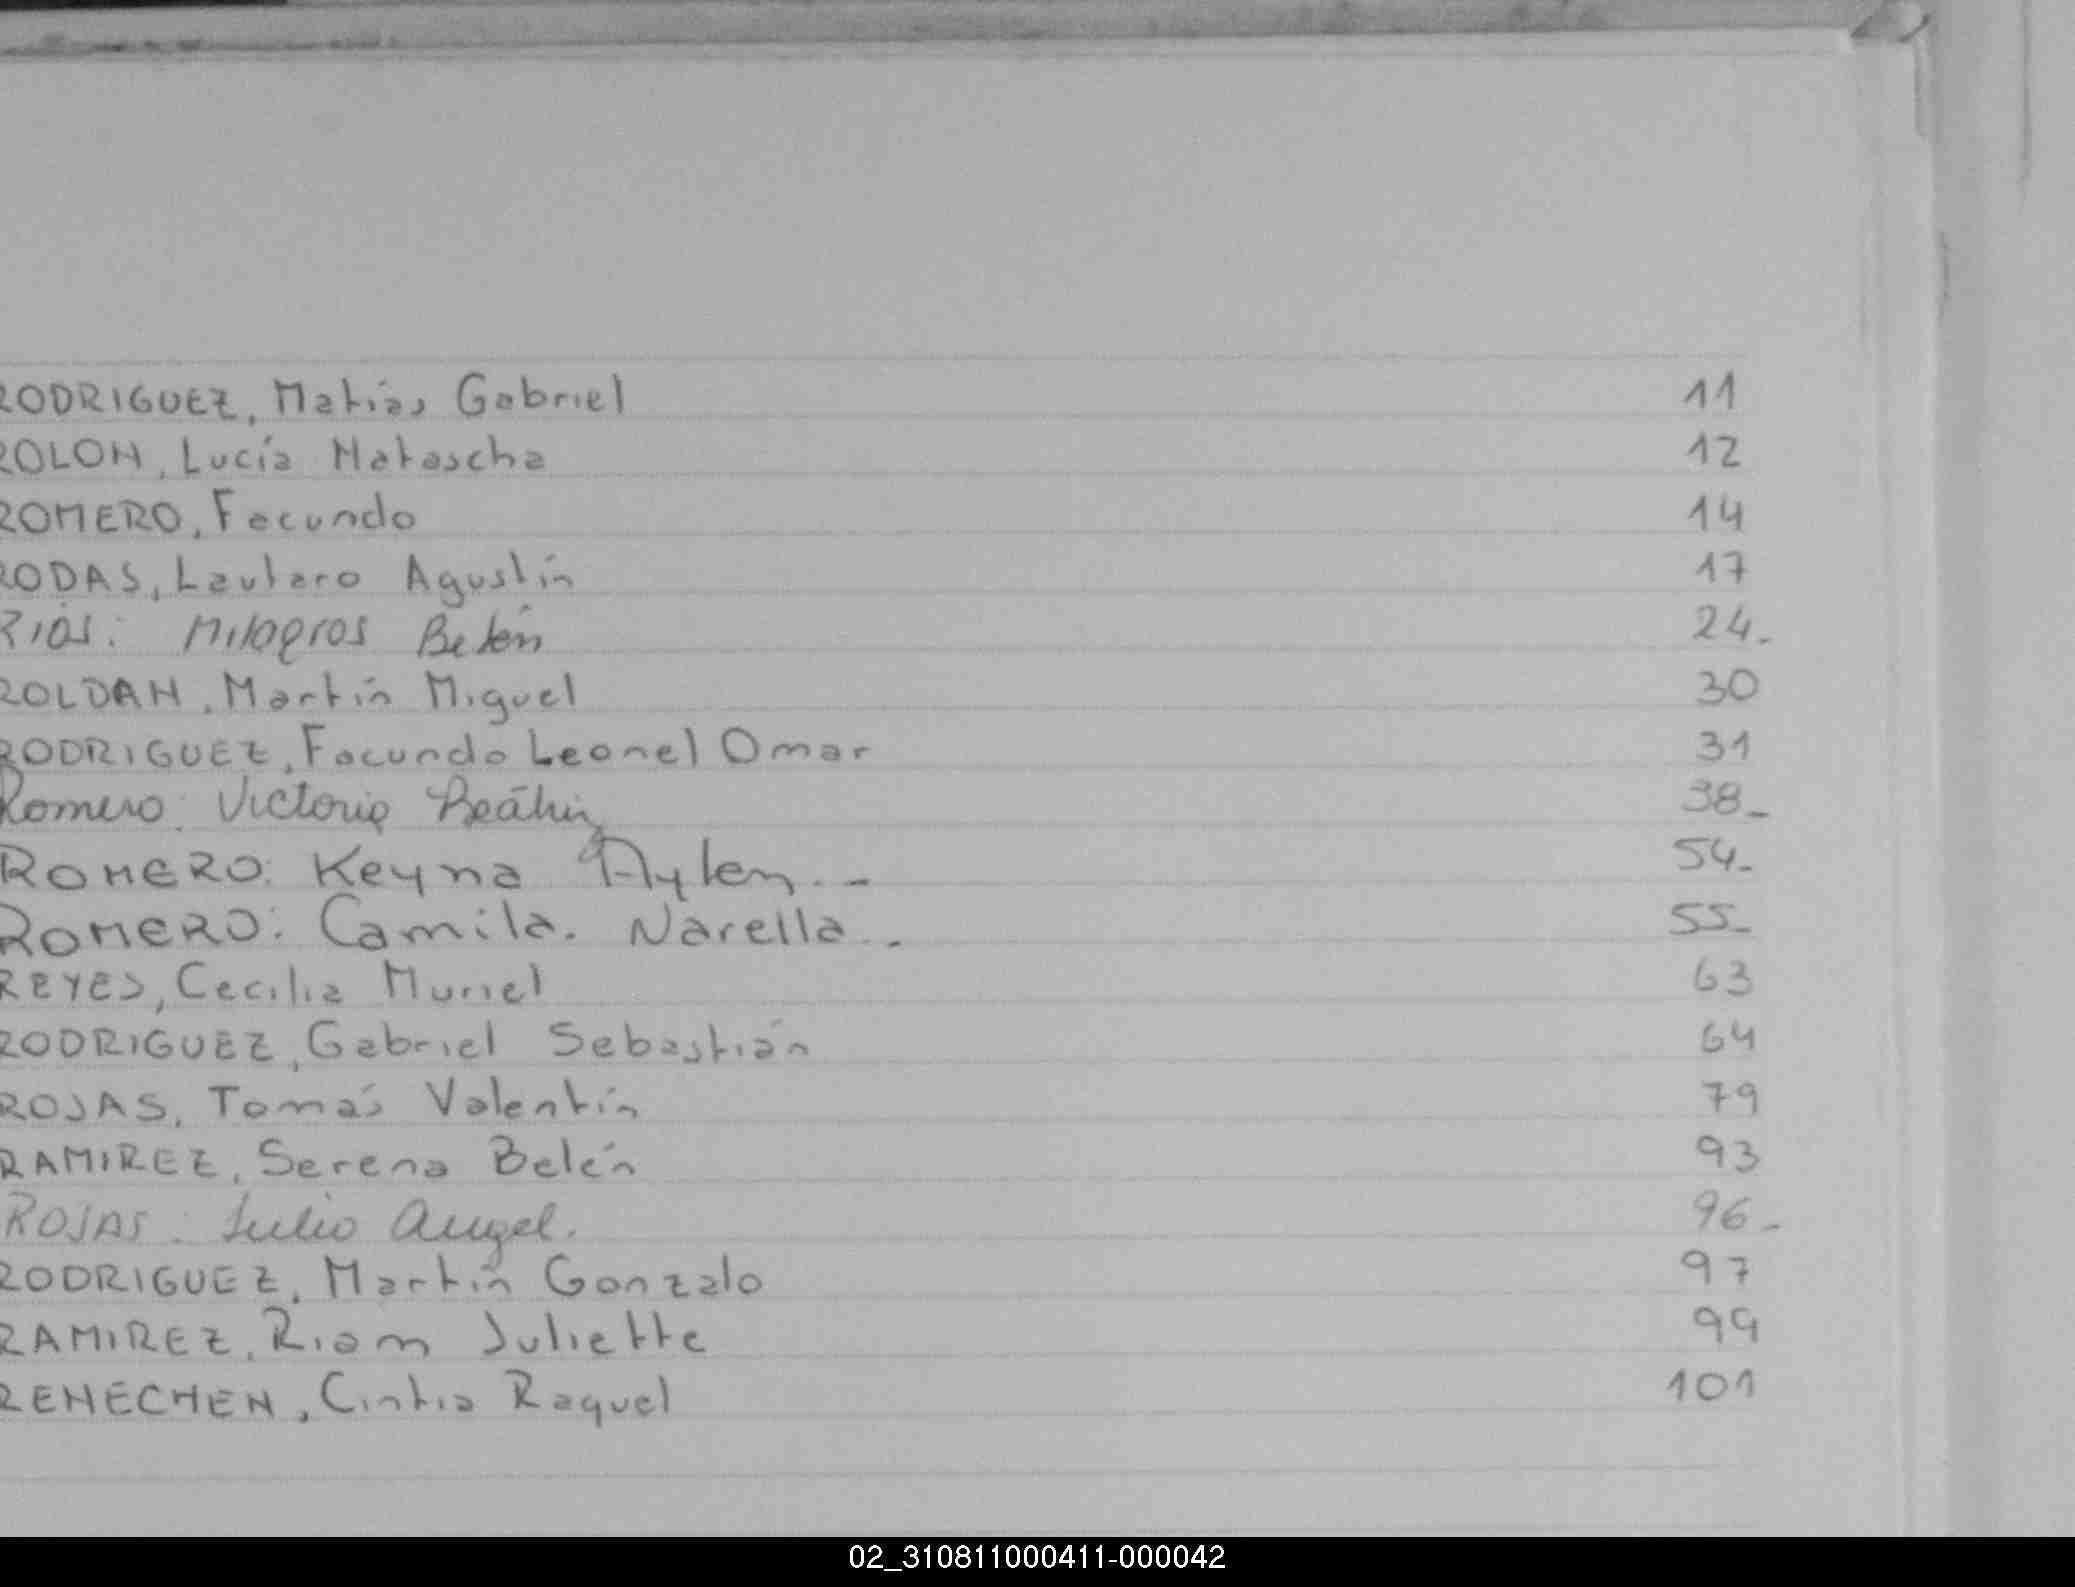 RODRIGUEZ, Matías Gabriel 11
ROLON, Lucía Natascha 12
ROMERO, Facundo 14
RODAS, Lautaro Agustín 17
RIOS: Milagros Belén 24.
ROLDAN, Martín Miguel 30
RODRIGUEZ, Facundo Leonel Omar 31
Romero: Victoria Beatriz 38_
ROMERO: Keyna Aylen.- 54.
ROMERO: Camila. Narella.. 55_
REYES, Cecilia Muriel 63
RODRIGUEZ, Gabriel Sebastián 64
ROJAS, Tomás Valentín 79
RAMIREZ, Serena Belén 93
ROJAS: Julio Angel. 96_
RODRIGUEZ, Martín Gonzalo 97
RAMIREZ, Riam Juliette 99
RENECHEN, Cintia Raquel 101
02_310811000411-000042